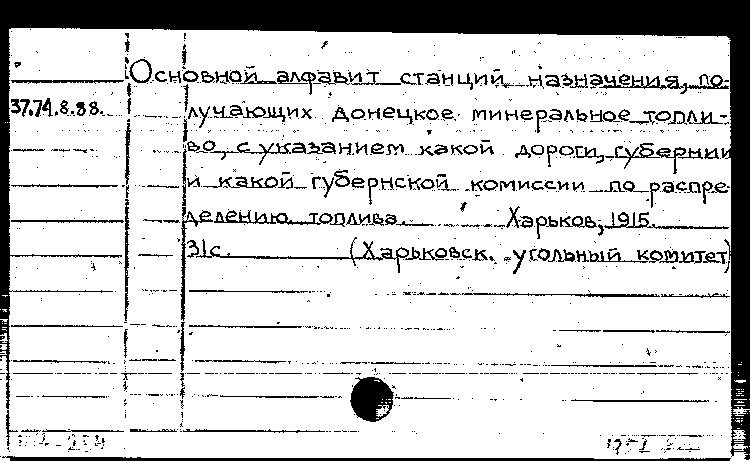 Основной алфавит станций назначения, по-
37.74.8.88. лучающих донецкое минеральное топли-
во, с указанием какой дороги, губернии
и какой губернской комиссии по распре-
делению топлива. Харьков, 1915.
31с. (Харьковск. угольный комитет)